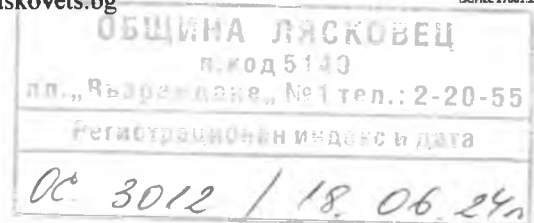 skovets.bg
ОБЩИНА ЛЯСКОВЕЦ
п.код 5140
пл. „Възраждане„ №1 тел.: 2-20-55
Регистрационен индекс и дата
ОС 3012 / 18. 06. 24г